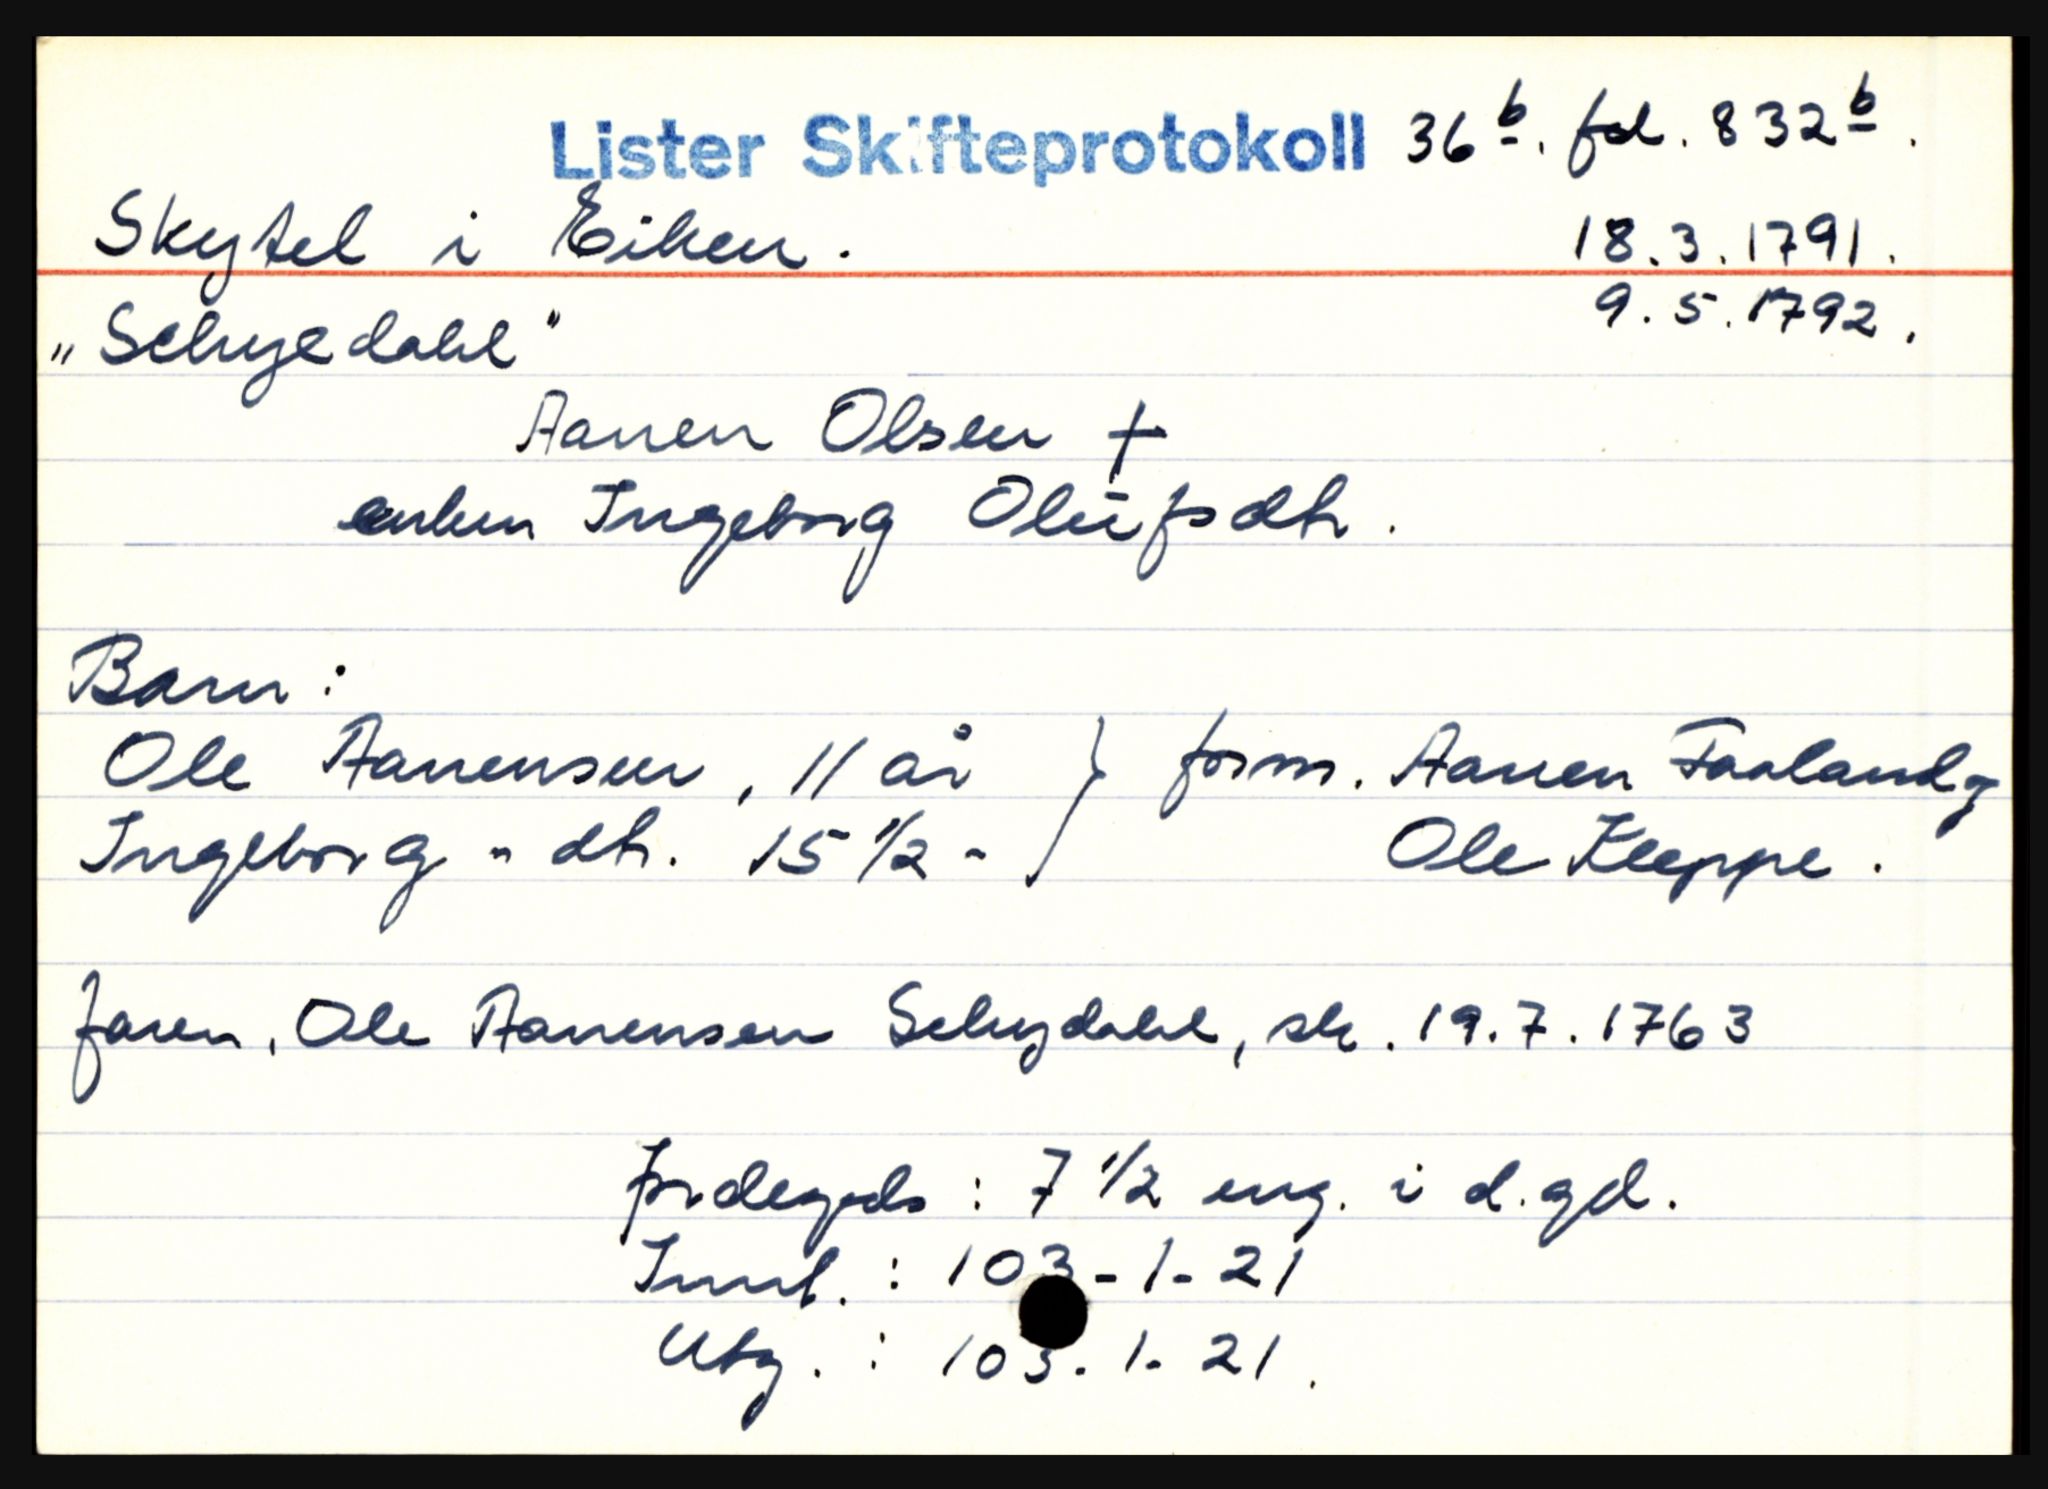 Lister Skifteprotokoll 36b. fol. 832b.
Skytel i Eiken. 18.3.1791.
9.5.1792.
„Schyedahl"
Aanen Olsen †
enken Ingeborg Olufsdtr.
Barn:
Ole Aanensen, 11 år } form. Aanen Faaland og
Ingeborg " dtr. 15 1/2 - Ole Kleppe.
faren, Ole Aanensen Schydahl, sk. 19.7.1763
Jordegods: 7 1/2 eng. i d. gd.
Innt.: 103-1-21
Utg.: 103-1-21.